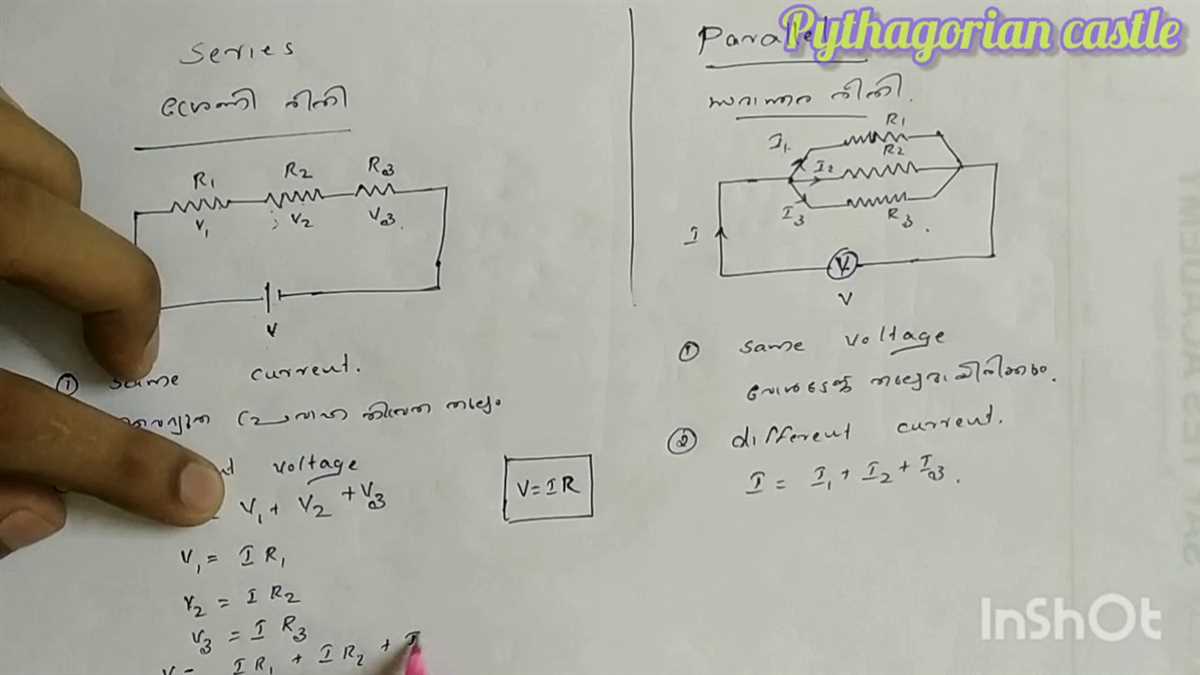 Series
ശ്രേണി രീതി
R1 R2 R3
V1 V2 V3
V
① same current.
voltage
V1 + V2 + V3
V1 = I R1
V2 = I R2
V3 = I R3
V = I R1 + I R2 + I
V = I R
Pythagorian castle
Parallel
സമാന്തര രീതി.
I1 R1
I2 R2
I3 R3
I
V
V
① same voltage
② different current.
I = I1 + I2 + I3.
InShOt